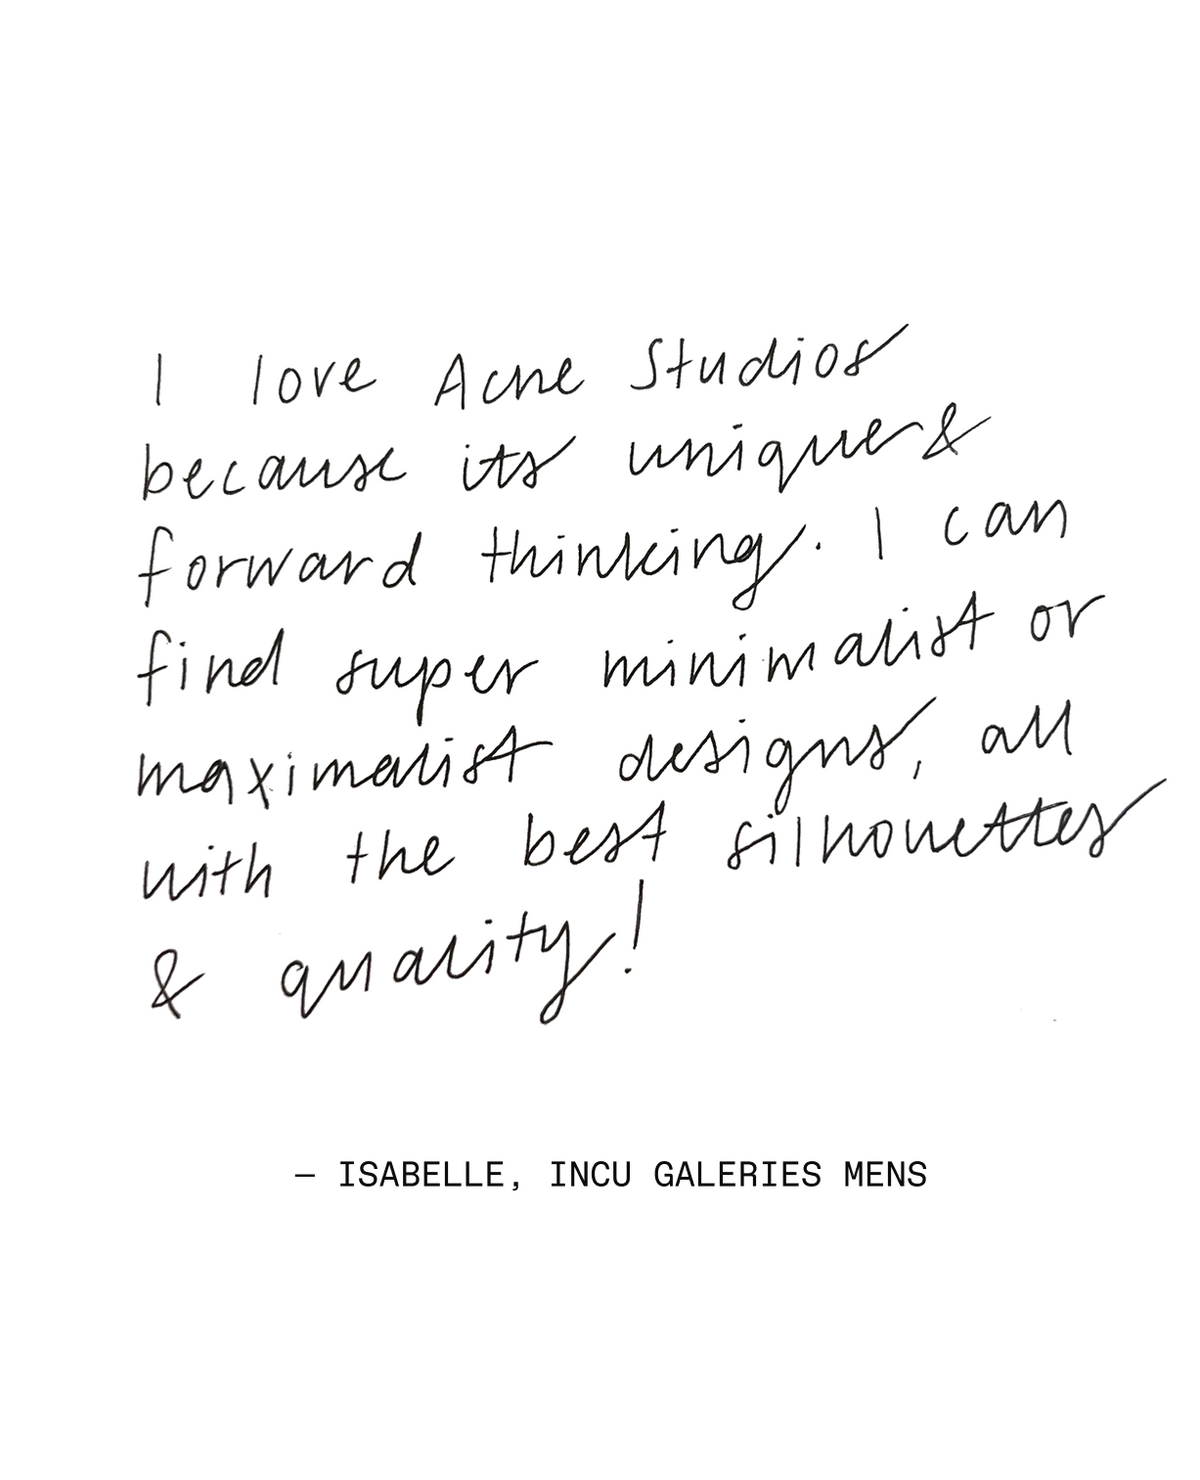 I love Acne Studios
because its unique &
forward thinking. I can
find super minimalist or
maximalist designs, all
with the best silhouettes
& quality!
— ISABELLE, INCU GALERIES MENS